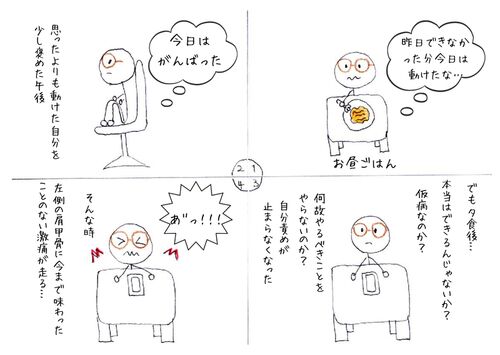 昨日できなか
った分今日は
動けたな…
お昼ごはん
今日は
がんばった
思ったよりも動けた自分を
少し褒めた午後
2 1
4 3
でも夕食後…
本当はできるんじゃないか？
仮病なのか？
何故やるべきことを
やらないのか？
自分責めが
止まらなくなった
あ゛っ!!!
そんな時
左側の肩甲骨に今まで味わった
ことのない激痛が走る…